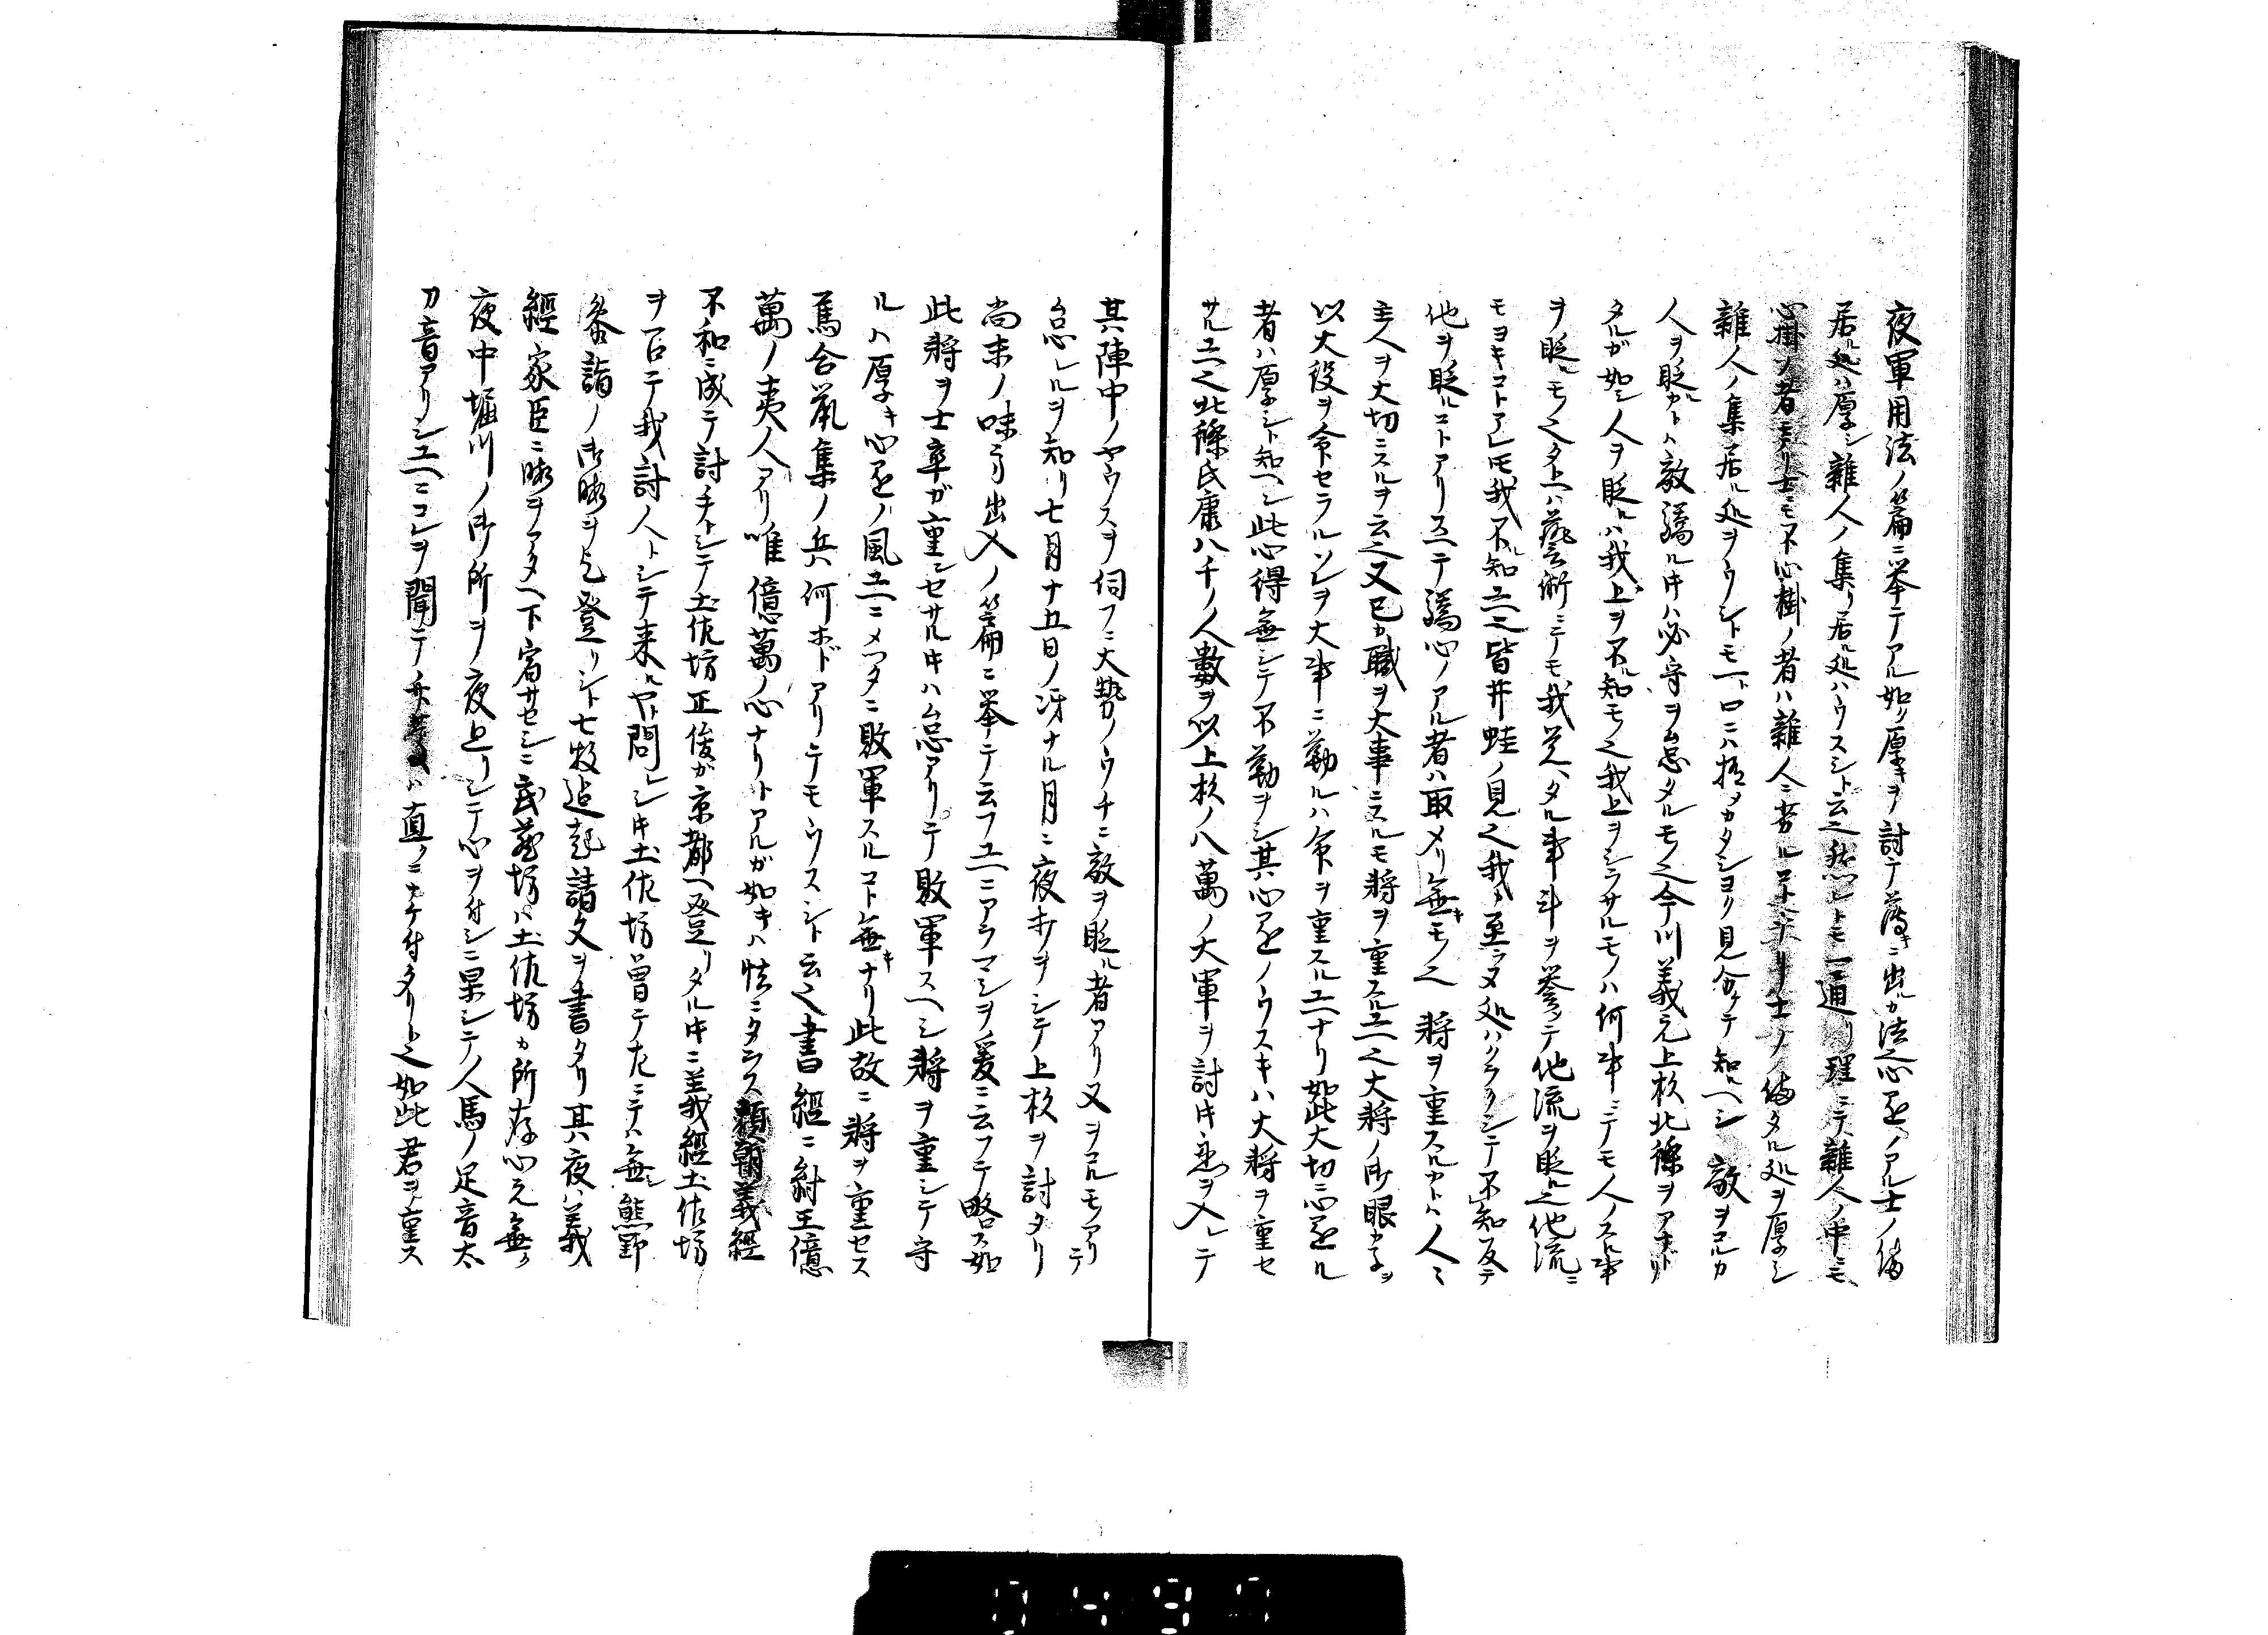 夜軍用法ノ篇ニ挙テアル如ク厚キヲ討テ薄キニ出ルガ法也心逺ノアル士ノ備
居ル処ハ厚シ雜人ノ集リ居ル処ハウスシト云之然レトモ一通リ理ニテ雜人ノ中ニモ
心掛ノ者モアリ士ニモ不心掛ノ者ハ雜人ニ劣ルコトアリ士ノ備タル処ヲ厚シ
雜人ノ集居ル処ヲウシトモ一ト口ニハ極メカタシヨリ見合テ知ヘシ敵ヲコルカ
人ヲ貶ルカトハ敵驕ル片ハ必守ヲ怠タルモノ之今川義元上杉北條ヲアナトリ
タルガ如シ人ヲ貶ルハ我上ヲ不知モノ之我上ヲシラサルモノハ何事ニテモ人ノスル事
ヲ貶ルモノ之タトヘハ藝術ニテモ我覚ヘタル事斗ヲ誉テ他流ヲ貶ル之他流ニ
モヨキコトアレ𪜈我不知ユヘ之皆井蛙ノ見之我カ至ラヌ処ハクラクシテ不知反テ
他ヲ貶ルコトアリユヘテ驕心ノアル者ハ取メリ無キモノ之将ヲ重スルカトハ人々
主人ヲ大切ニスルヲ云之又己カ職ヲ大事ニスルモ将ヲ重スルユヘ之大将ノ御眼カ子ヲ
以大役ヲ命セラルソレヲ大事ニ勤ルハ命ヲ重スルユヘナリ如此大切ニ心逺ル
者ハ厚シト知ヘシ此心得無シテ不勤ヲシ其心逺ノウスキハ大将ヲ重セ
サルユヘ之北條氏康八千ノ人数ヲ以上杉ノ八萬ノ大軍ヲ討片忍ヲ入レテ
其陣中ノヤウスヲ伺フニ大勢ノウチニ敵ヲ貶ル者アリ又ヲコルモノアリテ
怠レルヲ知リ七月十五日ノ冴ナル月ニ夜赤ヲシテ上杉ヲ討タリ
尚末ノ味方出入ノ篇ニ挙テ云フユヘニアラマシヲ爰ニ云フテ略ス如
此将ヲ士卒ガ重ンセサル片ハ怠アリテ敗軍スヘシ将ヲ重シテ守
ルハ厚キ心逺ノ風ユヘニメッタニ敗軍スルコト無キナリ此故ニ将ヲ重セス
烏合蟻集ノ兵ハ何ホドアリテモウスシト云之書經ニ紂王億
萬ノ夷人アリ唯億萬ノ心ナリトアルガ如キハ恃ニタラス頼朝義經
不和ニ成テ討手トシテ土佐坊正俊ガ京都ヘ登リタル片ニ義經土佐坊
ヲ召テ我討人トシテ来ルヤト問レシ片土佐坊曽テ左ニテハ無シ熊野
参詣ノ御暇ヲ乞登リシト七牧迠起請文ヲ書タリ其夜ハ義
經家臣ニ暇ヲアタヘ下宿サセシニ武蔵坊ハ土佐坊カ所存心元無ク
夜中堀川ノ御所ヲ夜廻リシテ心ヲ付シニ果シテ人馬ノ足音太
刀音アリシユヘニコレヲ聞テ弁慶ハ直クニカケ付タリト之如此君ヲ重ス